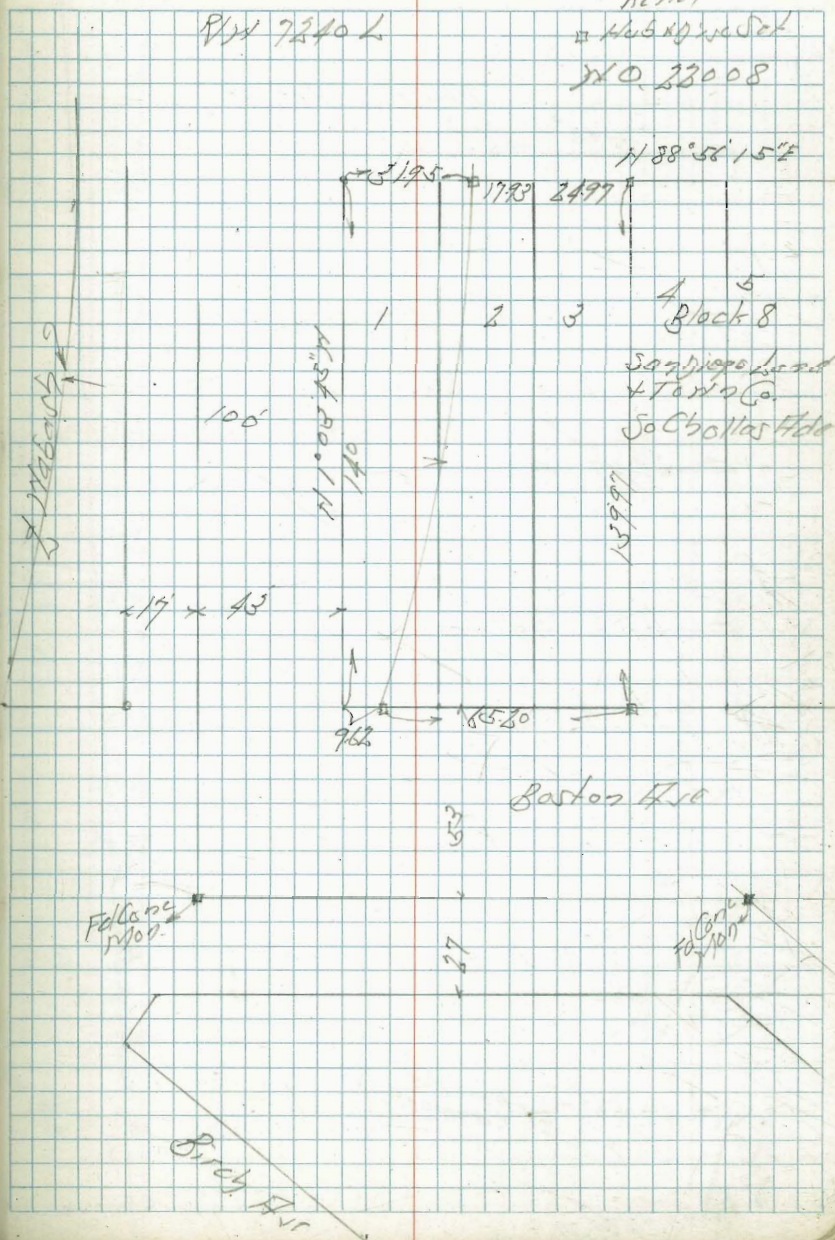 R/W 7240 L
Hub & Disc Set
W.O. 22008
N 88° 56' 15" E
31.95
17.93
24.97
1
2
3
4
5
Block 8
San Diego Land
& Town Co.
So Chollas Add
100'
N 1° 03' 45" W
140
139.97
℄ Wabash
17'
43'
9.62
65.20
Boston Ave
53
27
Fd Conc
Mon.
Fd Conc
Mon
Birch Ave